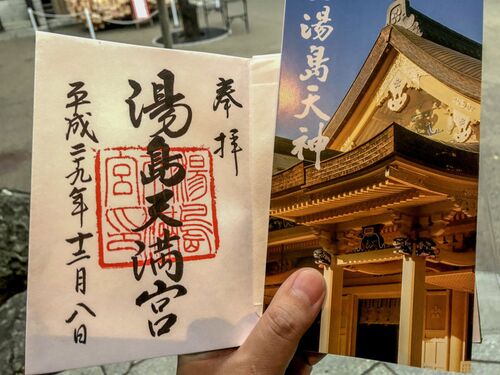 奉拝
湯島天満宮
平成二九年十二月八日
湯島
宮印
湯島天神